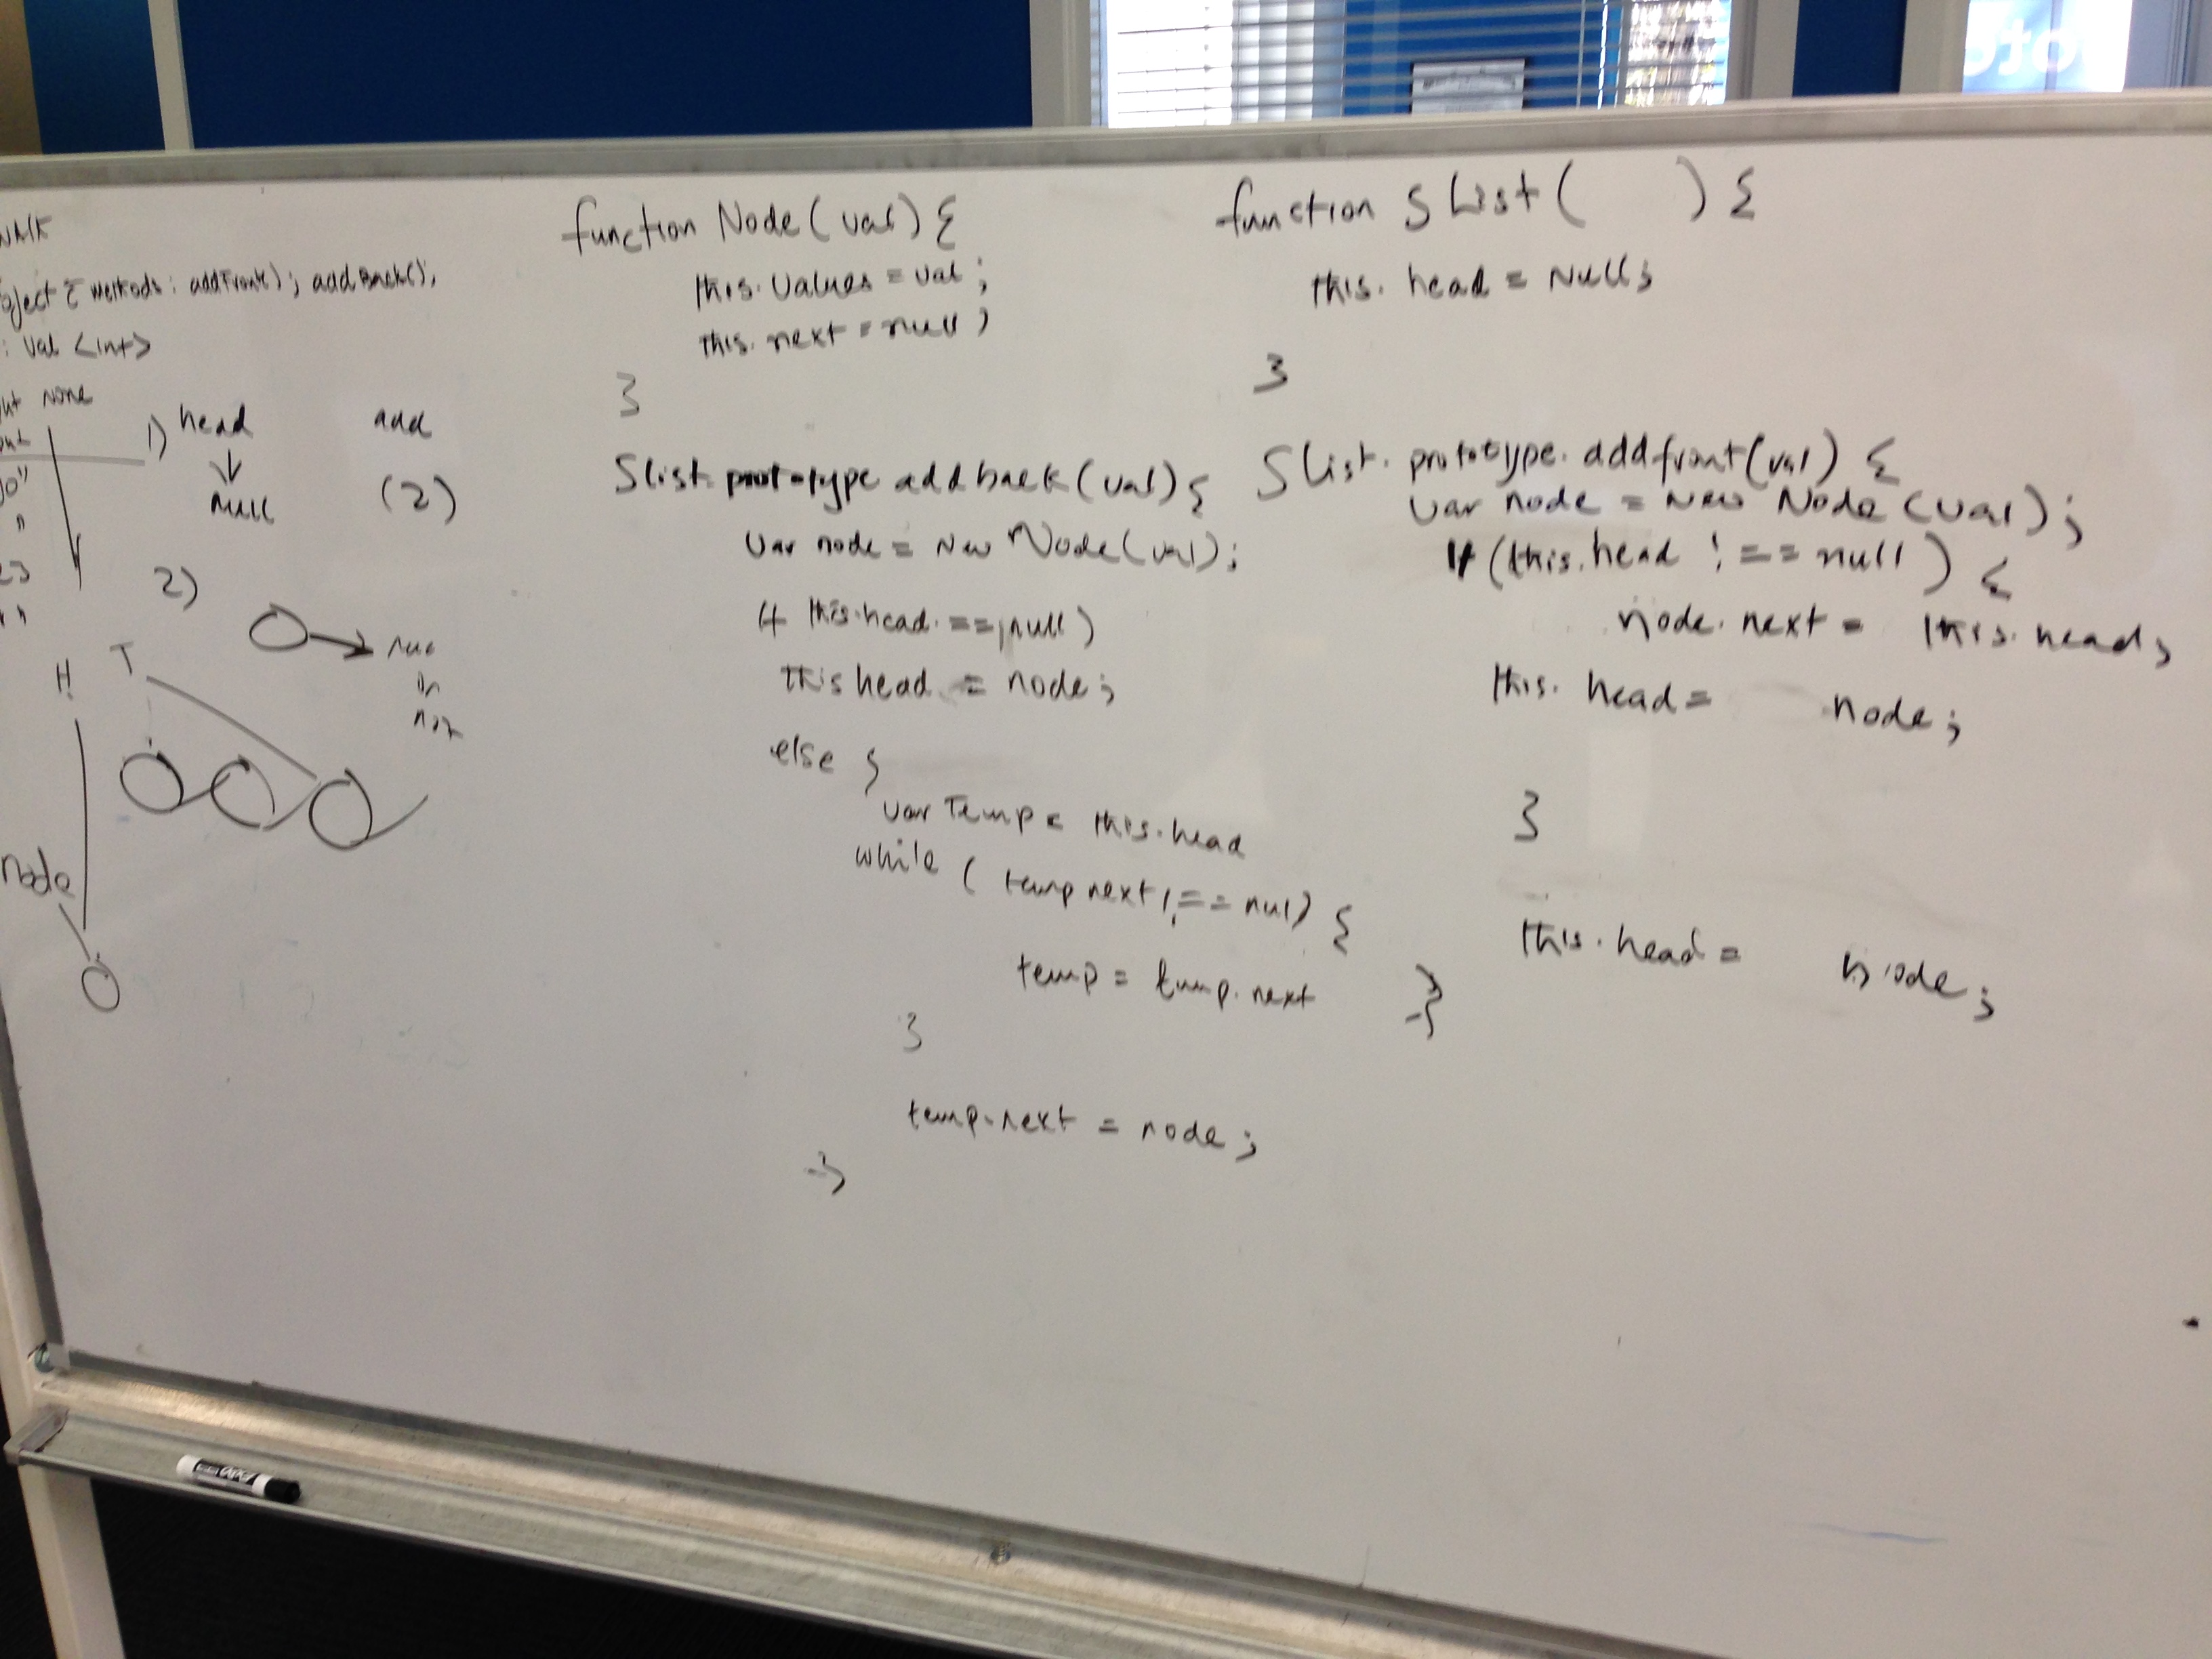 oject { methods: addFront(); addBack(),
: val <int>
none
1) head add
null (2)
2)
H T
node
function Node(val){
this.values = val;
this.next = null;
}
Slist.prototype addback(val){
var node = new Node(val);
if this.head ==, null)
this head = node;
else {
var Temp = this.head
while ( temp next !== null) {
temp = temp.next }
}
temp.next = node;
}
function SList( ) {
this. head = Null;
}
SList. prototype. addfront(val) {
var node = New Node(val);
If (this.head !== null) {
node. next = this.head;
this. head = node;
}
this. head = node;